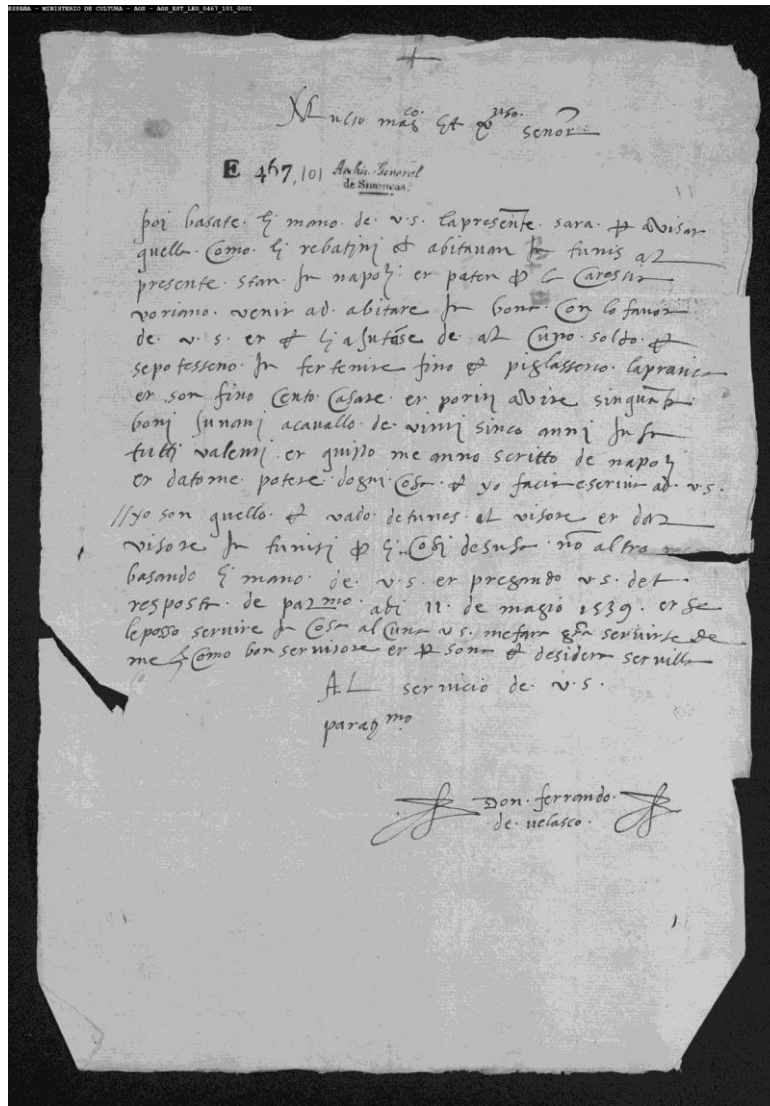 ESPAÑA - MINISTERIO DE CULTURA - AGS - AGS_EST_LEG_0467_101_0001
+
Multo mag.co et señor
E 467,101 Archivo General
de Simancas.
poi basate li mano de v.s. la presente sara p avisar
quella Como li rebatini abitavan In tunis al
presente stan In napoli er paten p la Carestia
voriano venir ad abitare In bona Con lo favor
de v.s. er li ajutase de al Cuno soldo
se potesseno In tertenire fino piglasseno la pratica
er son fino Cento Casate er porin avire sinquanta
boni a cavallo de vinti sinco anni In
tutti valenti er quisto me anno scritto de napoli
er datome potere dogni Cosa yo facia e servir ad v.s.
//yo son quello vado de tunes al visore er dal
visore In tunisi p li Cosi de susa no altro
basando li mano de v.s. er pregando v.s. det
resposta de palmo abi 11 de magio 1539 er se
le posso servire In Cosa al Cuna v.s. me fara gra servirse de
me Como bon servitore er p sona desidera servilla
AL servicio de v.s.
Don ferrando
de velasco